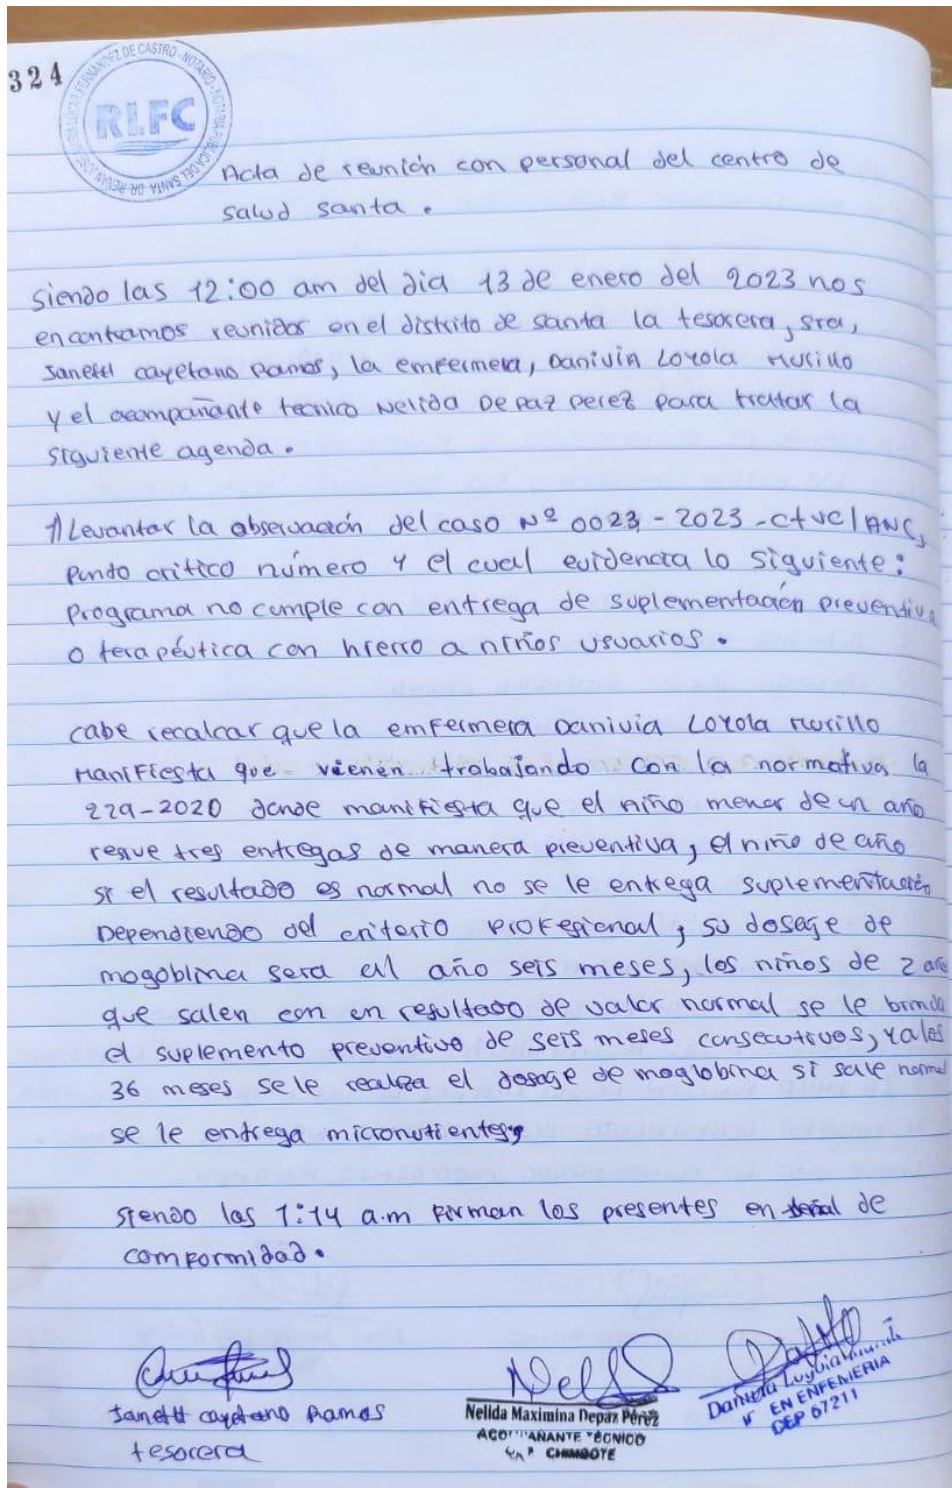 324
RLFC
Acta de reunión con personal del centro de
salud santa.
siendo las 12:00 am del dia 13 de enero del 2023 nos
encontramos reunidos en el distrito de santa la tesorera, sra,
Janett cayetano Ramos, la emfermera, Danivia Loyola Murillo
y el acompañante tecnico Nelida Depaz perez para tratar la
siguiente agenda.
1) Levantar la observación del caso Nº 0023-2023-ctvc/ANC,
punto critico número 4 el cual evidencia lo siguiente:
Programa no cumple con entrega de suplementación preventiva
o terapéutica con hierro a niños usuarios.
cabe recalcar que la emfermera Danivia Loyola Murillo
Manifiesta que vienen trabajando con la normativa la
229-2020 donde manifiesta que el niño menor de un año
tres entregas de manera preventiva, el niño de año
si el resultado es normal no se le entrega suplementación
Dependiendo del criterio profesional, su dosage de
mogoblina sera al año seis meses, los niños de 2 año
que salen con en resultado de valor normal se le brinda
el suplemento preventivo de seis meses consecutivos, ya los
36 meses se le realiza el dosage de moglobina si sale normal
se le entrega micronutientes,
siendo las 1:14 a.m firman los presentes en señal de
comformidad.
Janett cayetano Ramos
tesorera
Nelida Maximina Depaz Pérez
ACOMPAÑANTE TÉCNICO
CHIMBOTE
EN ENFERMERIA
67211